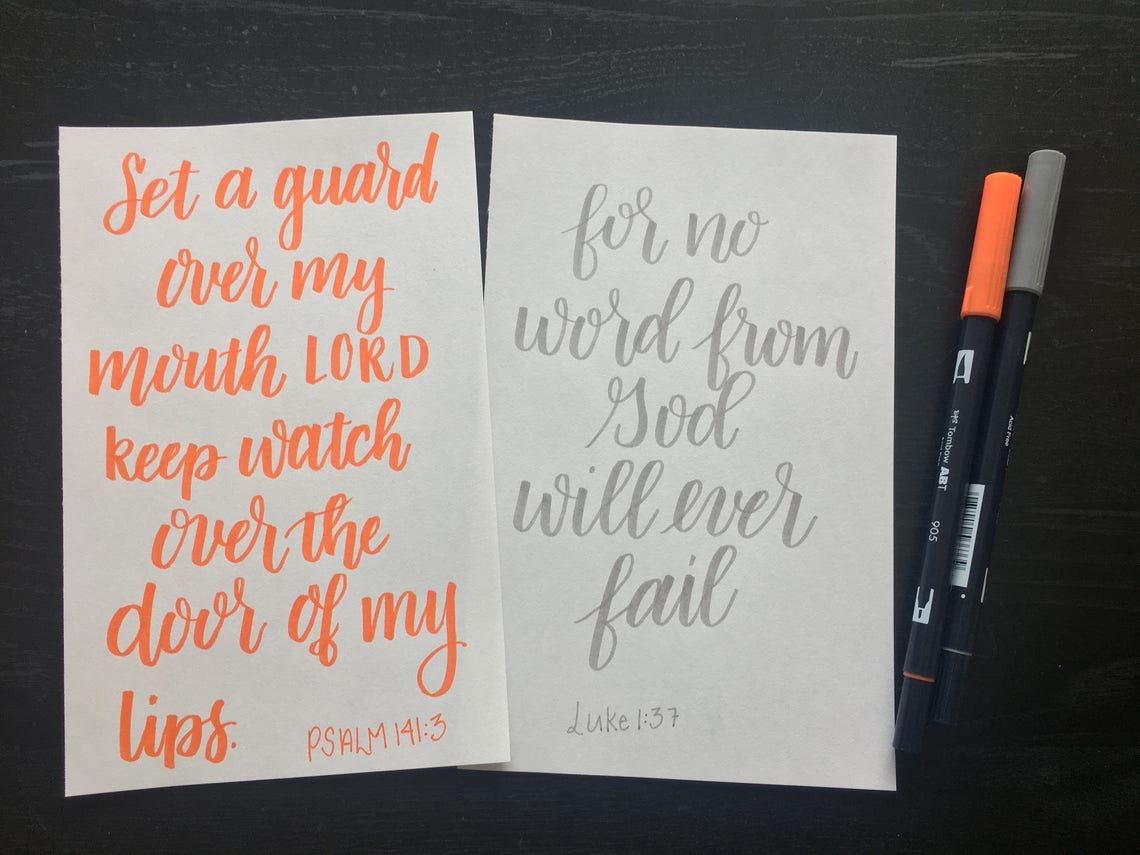 Set a guard
over my
mouth LORD
keep watch
over the
door of my
lips.
PSALM 141:3
for no
word from
God
will ever
fail
Luke 1:37
Tombow ABT
905
Acid Free